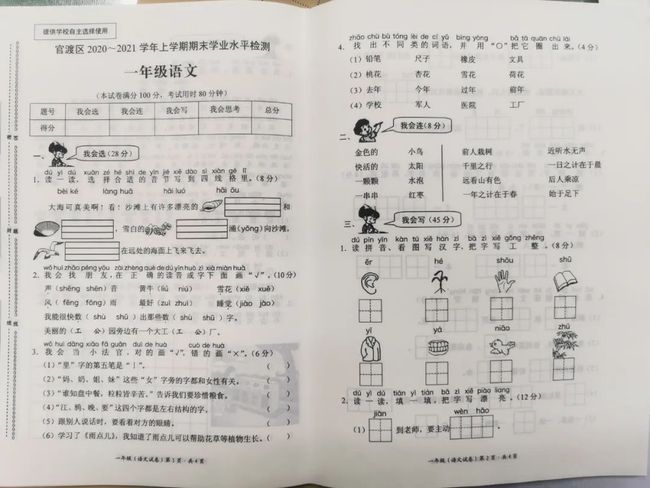 提供学校自主选择使用
官渡区2020～2021学年上学期期末学业水平检测
一年级语文
（本试卷满分100分，考试用时80分钟）
题号 我会选 我会连 我会写 我会思考 总分
得分
一、 我会选(28分)
dú yì dú xuǎn zé hé shì de yīn jié xiě dào sì xiàn gé lǐ
1. 读一读，选择合适的音节写到四线格里。(8分)
bèi ké làng huā hǎi luó hǎi ōu
大海可真美啊！看！沙滩上有许多漂亮的 和
，雪白的 涌(yǒng)向沙滩，
在远处的海面上飞来飞去。
wǒ huì zhǎo péng yǒu zài zhèng què de dú yīn huò zì xià miàn huà
2. 我会找朋友，在正确的读音或字下面画“√”。(10分)
声（shēng shēn）音 黄牛（liú niú） 雪花（xiě xuě）
风（fēng fōng）雨 最好（zuì zhuì） 睡觉（jiào jào）
我能很快数（shù shǔ）出那些数（shù shǔ）字。
美丽的（工 公）园旁边有一个大工（工 公）厂。
wǒ huì dāng xiǎo fǎ guān duì de huà cuò de huà
3. 我会当小法官，对的画“√”，错的画“×”。(6分)
(1)“里”字的第五笔是“丨”。 （ ）
(2)“妈、奶、姐、妹”这些“女”字旁的字都和女性有关。 （ ）
(3)“谁知盘中餐，粒粒皆辛苦。”告诉我们要珍惜粮食。 （ ）
(4)“江、鸦、晚、要”这四个字都是左右结构的字。 （ ）
(5)跟别人说话时，要看着对方的眼睛。 （ ）
(6)学习了《雨点儿》，我知道了雨点儿可以帮助花草等植物生长。（ ）
一年级（语文试卷）第1页·共4页
zhǎo chū bù tóng lèi de cí yǔ bìng yòng bǎ tā quān chū lái
4. 找出不同类的词语，并用“○”把它圈出来。(4分)
(1)铅笔 尺子 橡皮 文具
(2)桃花 杏花 雪花 荷花
(3)去年 今年 过年 前年
(4)学校 军人 医院 工厂
二、 我会连(8分)
金色的 小鸟 前人栽树 近听水无声
快活的 太阳 千里之行 一日之计在于晨
一颗颗 水泡 远看山有色 后人乘凉
一串串 红枣 一年之计在于春 始于足下
三、 我会写(45分)
dú pīn yīn kàn tú xiě hàn zì bǎ zì xiě gōng zhěng
1. 读拼音、看图写汉字，把字写工整。(8分)
ěr hé shǒu shū
yī yá niǎo zhú
dú yì dú tián yì tián bǎ zì xiě piào liang
2. 读一读，填一填，把字写漂亮。(12分)
jiàn wèn hǎo
(1) 到老师，要主动 。
一年级（语文试卷）第2页·共4页